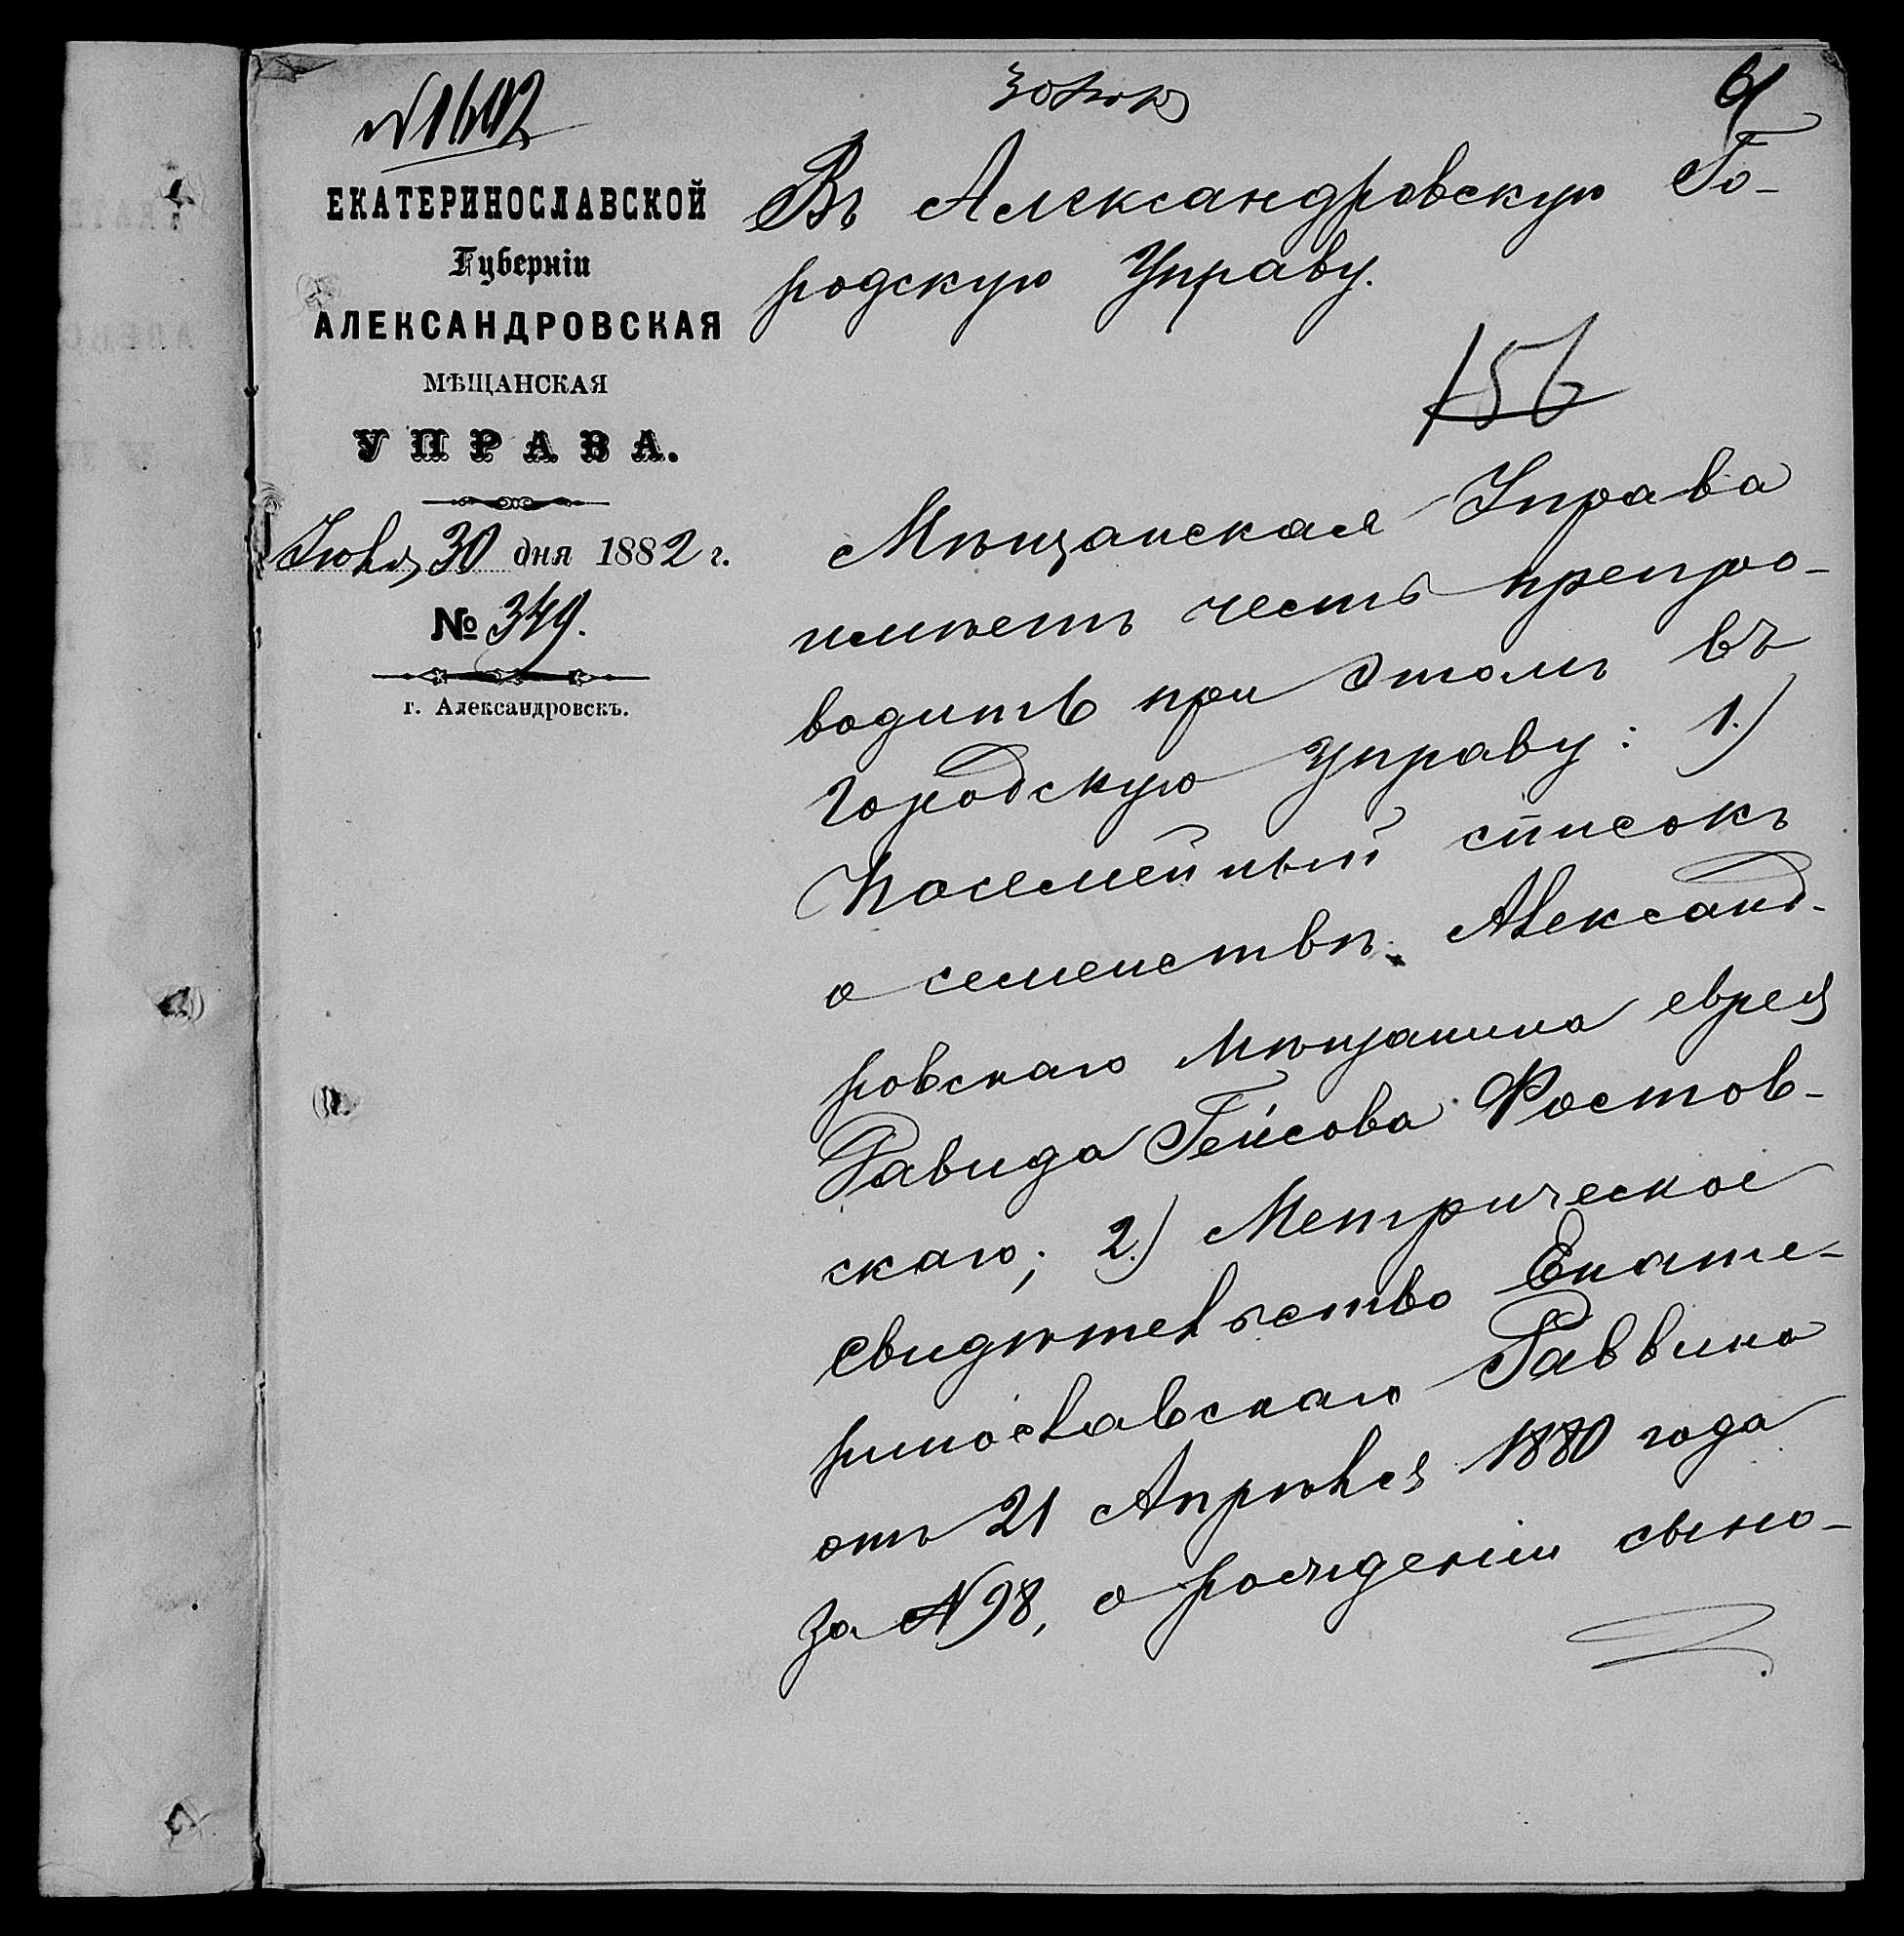 №1602
30 Іюля
ЕКАТЕРИНОСЛАВСКОЙ
Губерніи
АЛЕКСАНДРОВСКАЯ
МѢЩАНСКАЯ
УПРАВА.
Іюля 30 дня 1882 г.
№ 349.
г. Александровскъ.
Въ Александровскую Го-
родскую Управу.
156
Мѣщанская Управа
имѣетъ честь препро-
водить при этомъ въ
городскую Управу: 1.)
Посемейный списокъ
о семействѣ Александ-
ровскаго мѣщанина еврея
Давида Гейсова Ростов-
скаго; 2.) Метрическое
свидѣтельство Екате-
ринославскаго Раввина
отъ 21 Апрѣля 1880 года
за №98, о рожденіи сына-